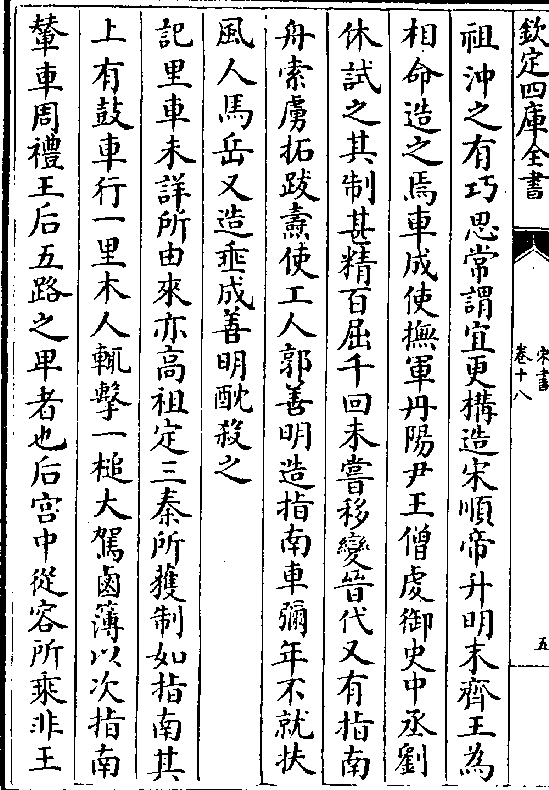 欽定四庫全書
宋書
卷十八
五
祖沖之有巧思常謂宜更構造宋順帝升明末齊王為
相命造之焉車成使撫軍丹陽尹王僧虔御史中丞劉
休試之其制甚精百屈千回未嘗移變晉代又有指南
舟索虜拓跋燾使工人郭善明造指南車彌年不就扶
風人馬岳又造垂成善明酖殺之
記里車未詳所由來亦高祖定三秦所獲制如指南其
上有鼓車行一里木人輒擊一槌大駕鹵簿以次指南
輦車周禮王后五路之卑者也后宫中從容所乘非王